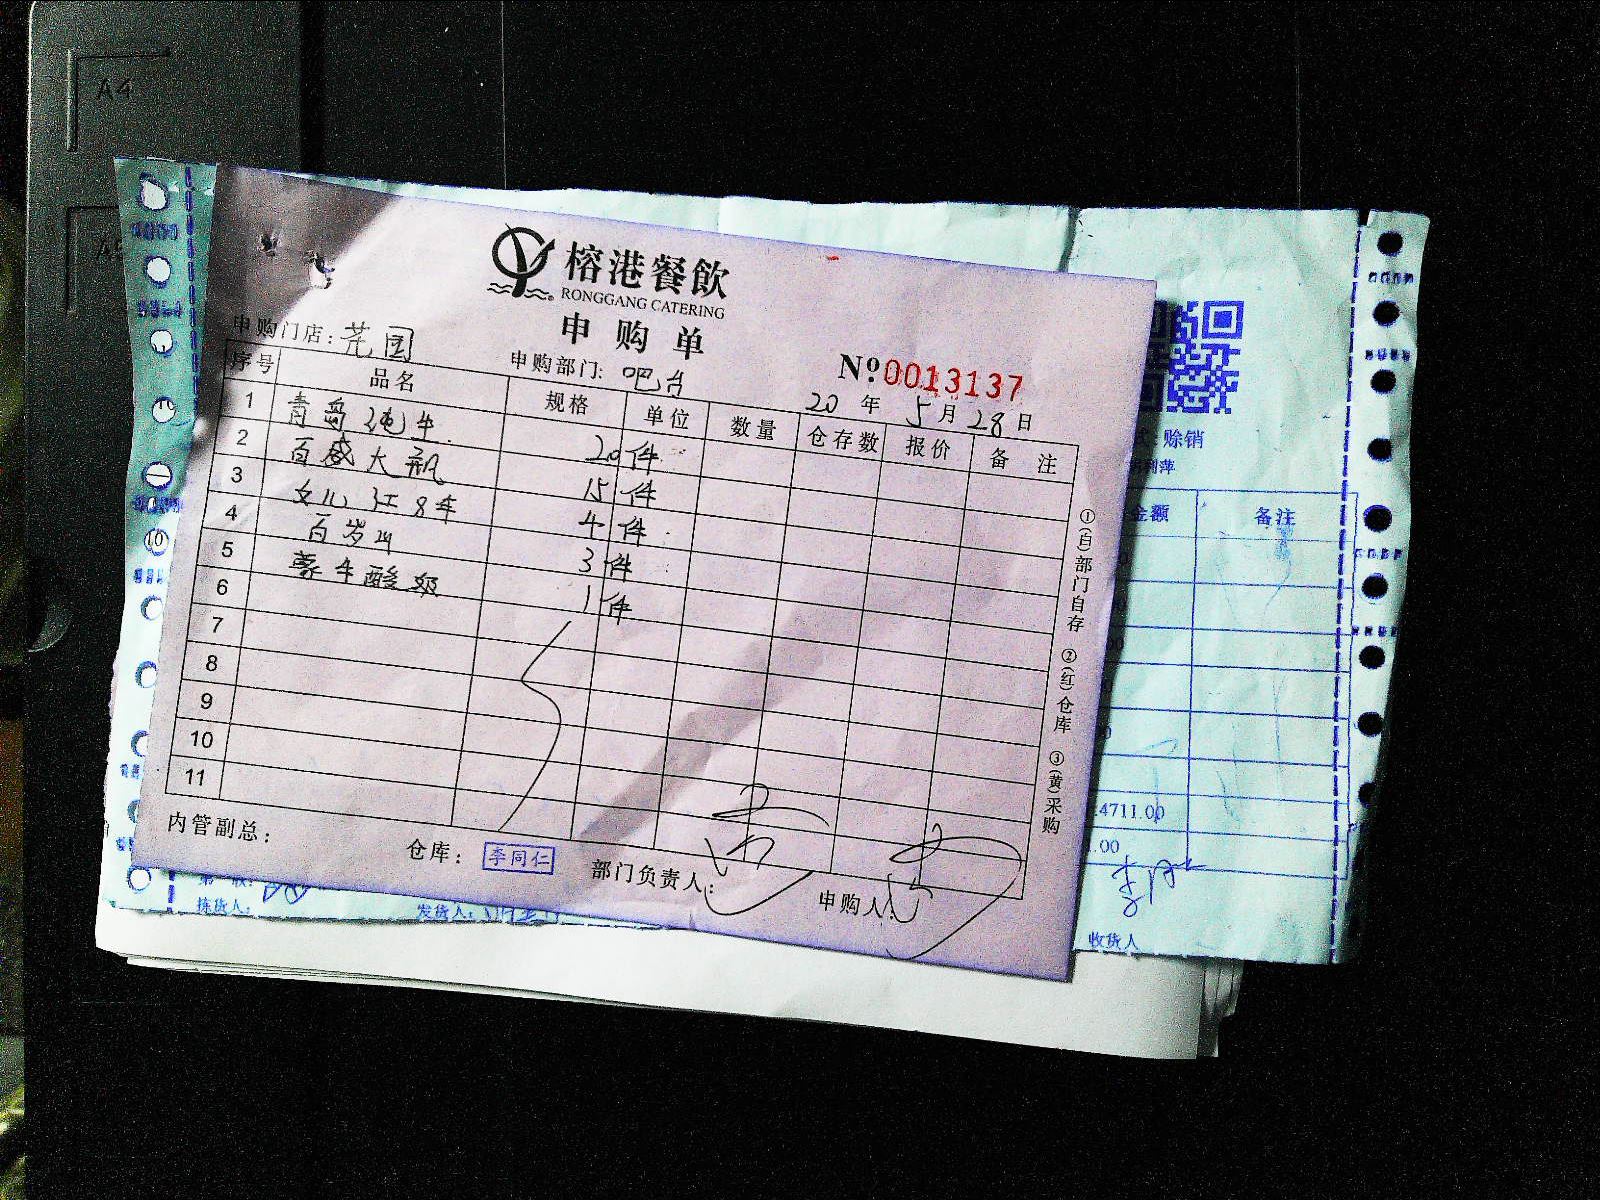 A4
榕港餐飲
RONGGANG CATERING
申购单
申购门店: 花园
申购部门: 吧台
Nº0013137
20 年 5 月 28 日
序号 品名 规格 单位 数量 仓存数 报价 备注
1 青岛纯生 20件
2 百威大瓶 15件
3 女儿红8年 4件
4 百岁山 3件
5 蒙牛酸奶 1件
6
7
8
9
10
11
①(白)部门自存 ②(红)仓库 ③(黄)采购
内管副总:
仓库: 李同仁
部门负责人:
申购人:
赊销
金额 备注
4711.00
.00
拣货人:
发货人:
收货人